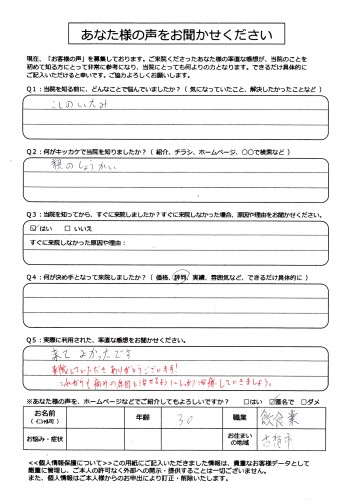 あなた様の声をお聞かせください
現在、「お客様の声」を募集しております。ご来院くださったあなた様の率直な感想が、当院のことを
初めて知る方にとって非常に参考になり、当院にとっても何よりの力となります。できるだけ具体的に
ご記入いただけると幸いです。ご協力よろしくお願いします。
Q1：当院を知る前に、どんなことで悩んでいましたか？（気になっていたこと、解決したかったことなど）
こしのいたみ
Q2：何がキッカケで当院を知りましたか？（紹介、チラシ、ホームページ、〇〇で検索など）
親のしょうかい
Q3：当院を知ってから、すぐに来院しましたか？すぐに来院しなかった場合、原因や理由をお聞かせください。
☑はい □いいえ
すぐに来院しなかった原因や理由：
Q4：何が決め手となって来院しましたか？（価格、評判、実績、雰囲気など、できるだけ具体的に）
Q5：実際に利用された、率直な感想をお聞かせください。
来てよかったです
来院していただきありがとうございます！
これからも痛みの原因を治せるようにしっかり治療していきましょう。
※あなた様の声を、ホームページなどでご紹介してもよろしいですか？ □はい ☑匿名で □ダメ
お名前 年齢 30 職業 飲食業
（イニシャル可）
お悩み・症状 お住まいの地域 古河市
<<個人情報保護について>>この用紙にご記入いただきました情報は、貴重なお客様データとして
厳重に管理し、ご本人の許可なく外部への開示・提供することは一切ございません。
また、個人情報はご本人様からのお申出により訂正・削除いたします。